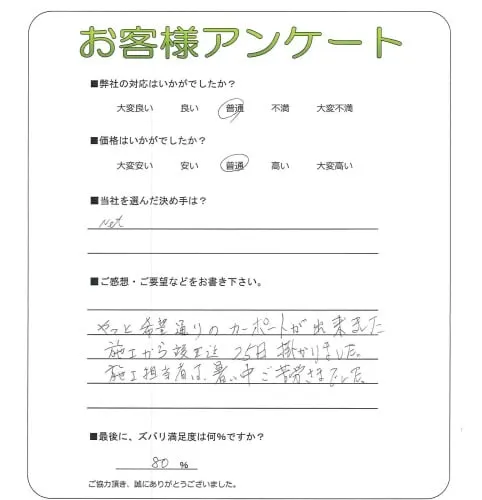 お客様アンケート
■弊社の対応はいかがでしたか？
大変良い 良い 普通 不満 大変不満
■価格はいかがでしたか？
大変安い 安い 普通 高い 大変高い
■当社を選んだ決め手は？
Net
■ご感想・ご要望などをお書き下さい。
やっと希望通りのカーポートが出来ました
施工から竣工迄 25日掛かりました。
施工担当者は、暑い中ご苦労さまでした。
■最後に、ズバリ満足度は何％ですか？
80 %
ご協力頂き、誠にありがとうございました。